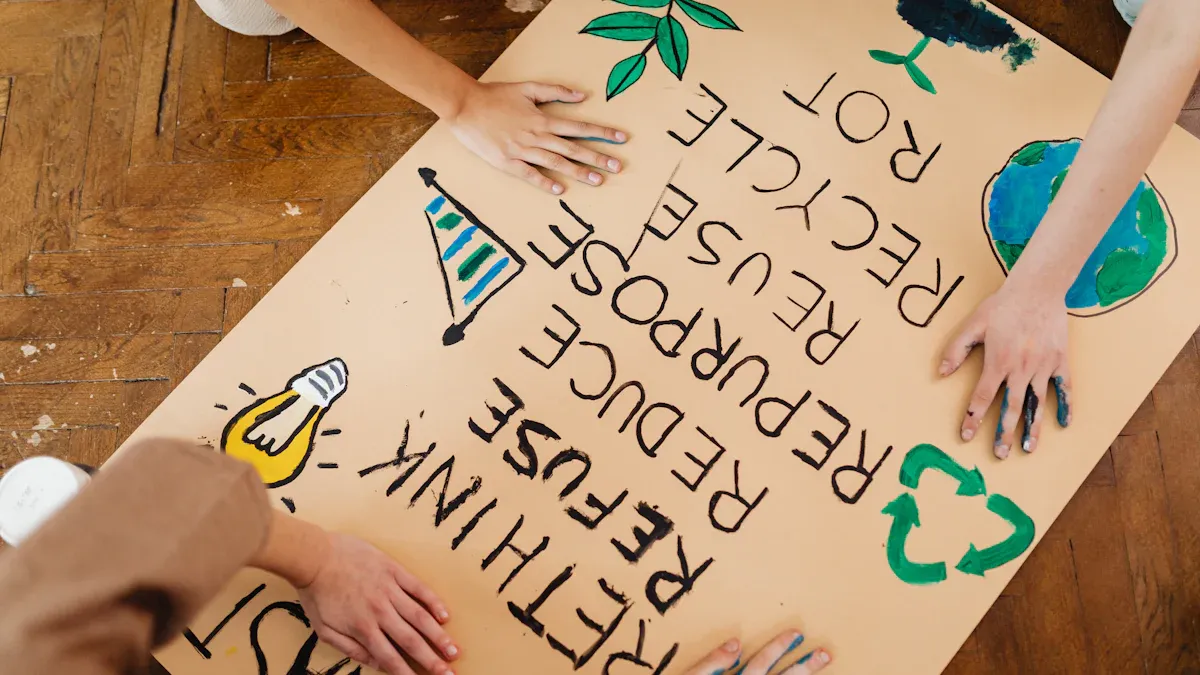 RETHINK
REFUSE
REDUCE
REPURPOSE
REUSE
RECYCLE
ROT